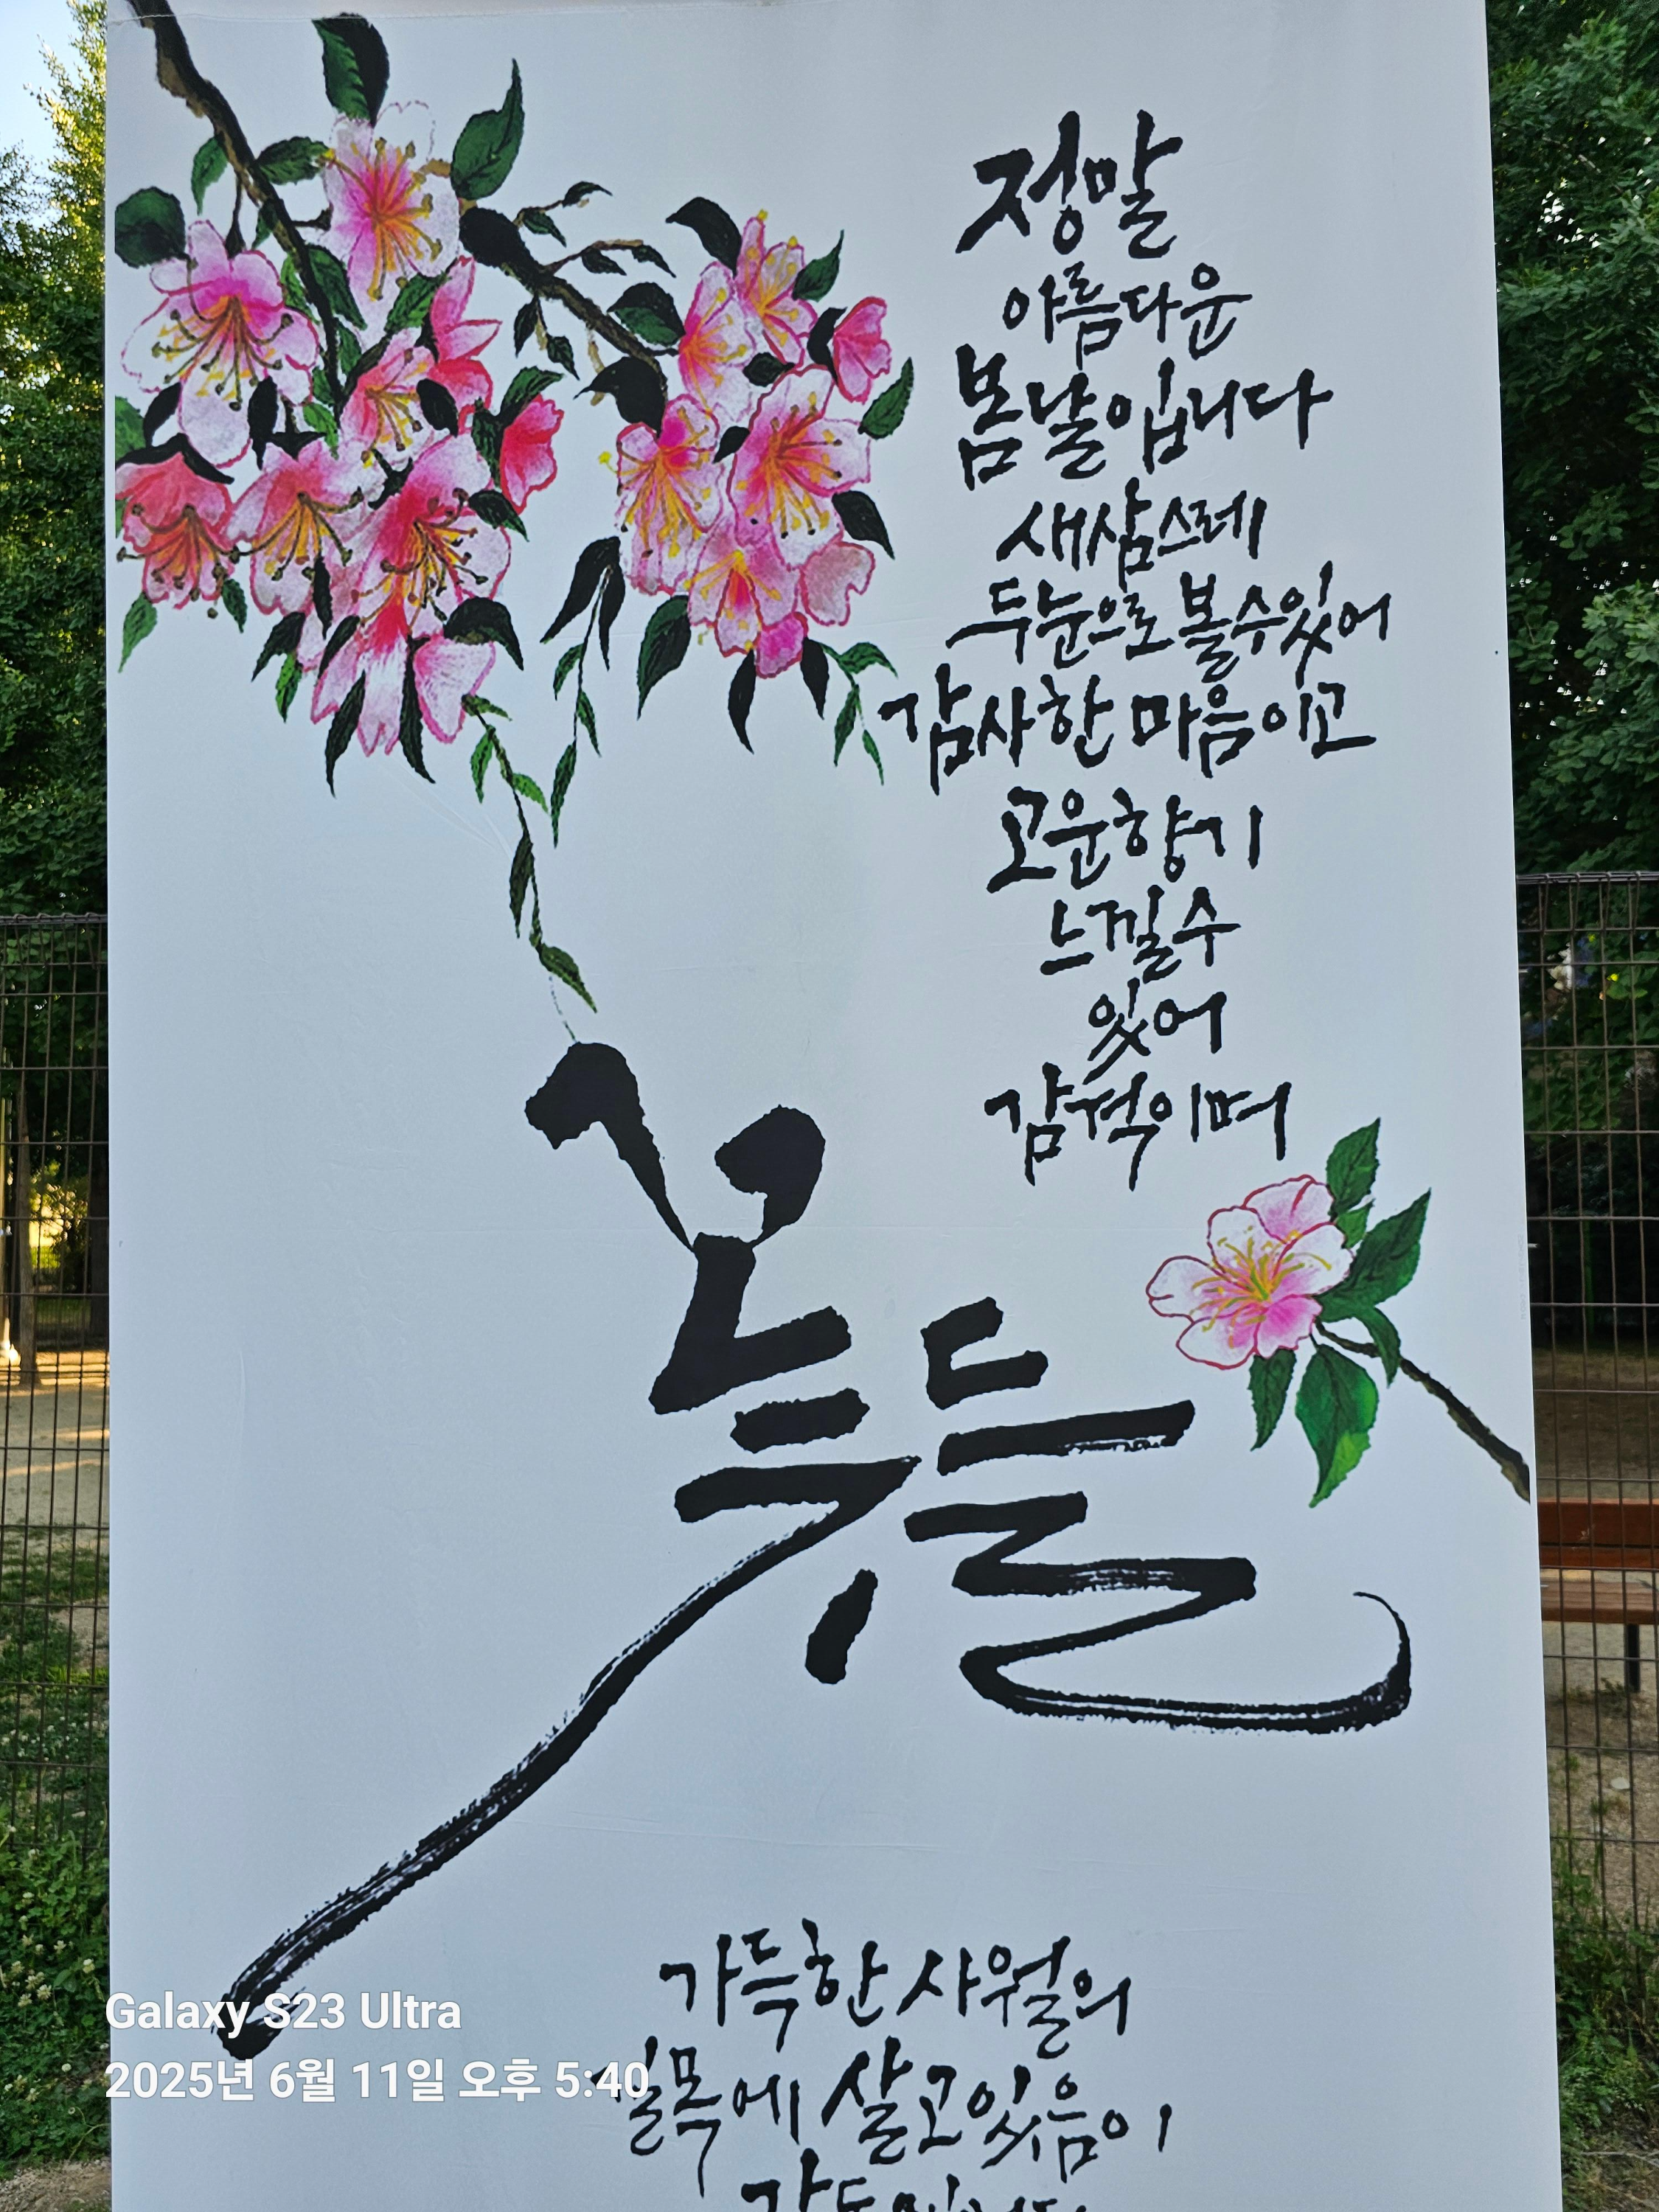 정말
아름다운
봄날입니다
새삼스레
두눈으로 볼수있어
감사한 마음이고
고운향기
느낄수
있어
감격이며
꽃들
가득한 사월의
길목에 살고있음이
Galaxy S23 Ultra
2025년 6월 11일 오후 5:40